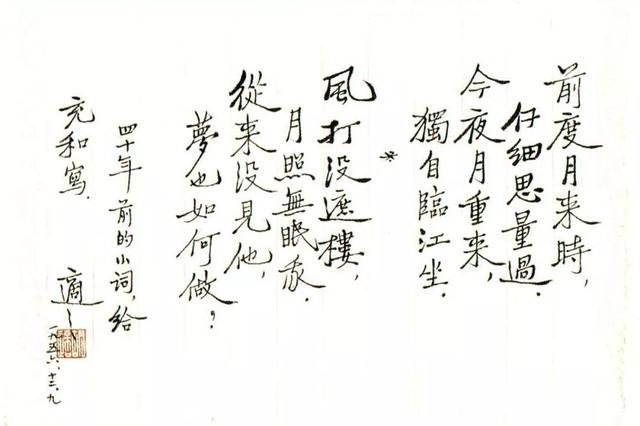 前度月来時，
仔細思量過．
今夜月重来，
獨自臨江坐．
*
風打没遮樓，
月照無眠我．
從来没見他，
夢也如何做？
四十年前的小词，给
充和寫．
適之
一九五六，十二，九